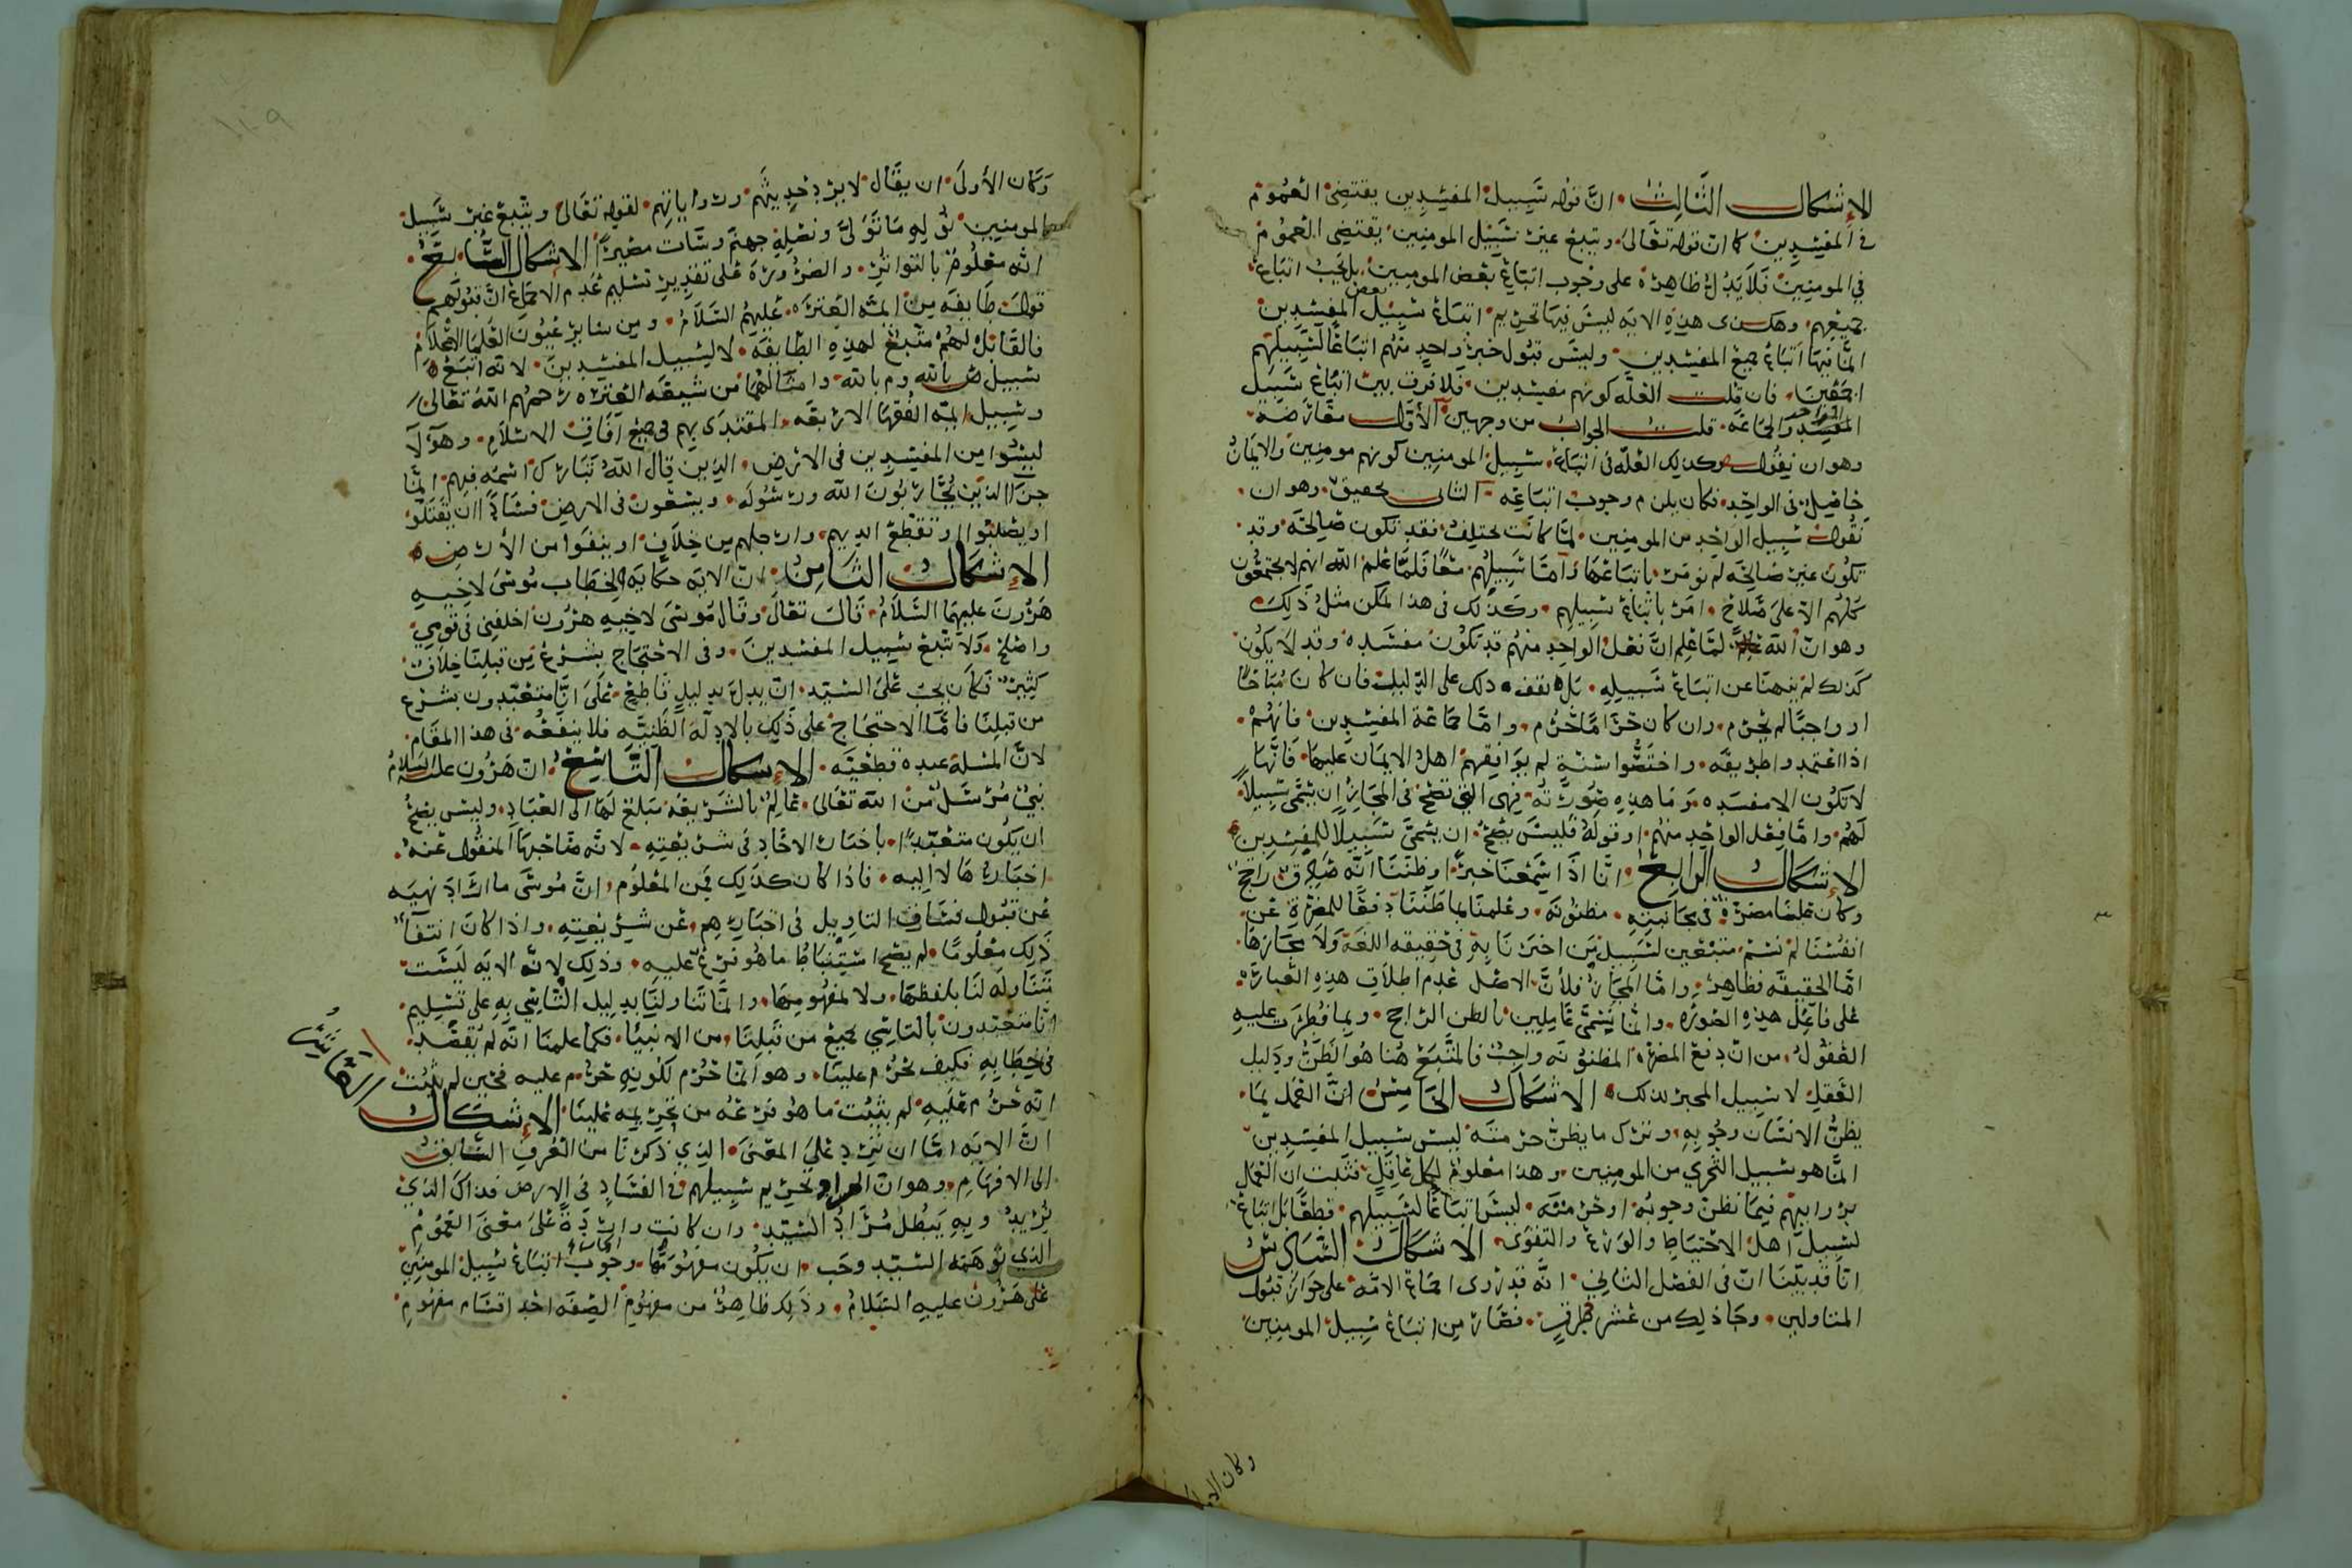 الإشكال الثالث ان قوله سبيل المفسدين يقتضي العموم
في المفسدين كما ان قوله تعالى ويتبع غير سبيل المومنين يقتضي العموم
في المومنين فلا يدل ظاهره على وجوب اتباع بعض المومنين بل يجب اتباع
جميعهم وهكذى هذه الايه ليس فيها تحريم اتباع سبيل بعض المفسدين
انما فيها اتباع جميع المفسدين وليس قبول خبر واحد منهم اتباعا لسبيلهم
اجمعين فان قلت العله كونهم مفسدين فلا فرق بين اتباع سبيل
المفسد الواحد والجماعه قلت الجواب من وجهين الأول معارضه
وهو ان نقول وكذلك العله في اتباع سبيل المومنين كونهم مومنين والايمان
حاصل في الواحد فكان يلزم وجوب اتباعه الثاني تحقيق وهو ان
نقول سبيل الواحد من المومنين لما كانت تختلف فقد تكون صالحه وقد
تكون غير صالحه لم نومر باتباعها وأما سبيلهم معا فلما علم الله انهم لا يجتمعون
كلهم الا على صلاح امر باتباع سبيلهم وكذلك في هذا الممكن مثل ذلك
وهو ان الله لما علم ان فعل الواحد منهم قد تكون مفسده وقد لا يكون
كذلك لم ينهنا عن اتباع سبيله بل نقف ذلك على الدليل فان كان مباحا
او واجبا لم يحرم وان كان حراما حرم واما جماعة المفسدين فانهم
اذا اعتمدوا طريقه واختصوا سنة لم يوافقهم اهل الايمان عليها فانها
لا تكون الا مفسده وما هذه صورته فهي التي تصح في المجاز ان يسمى سبيلا
لهم واما فعل الواحد منهم او قوله فليس يصح ان يسمى سبيلا للمفسدين
الإشكال الرابع انا اذا سمعنا خبرا وظننا انه صدق راجح
وكان علينا مضرة في مجانبته مظنونه وعلمنا بما ظننا دفعا للمضرة عن
انفسنا لم نسم متبعين لسبيل من اخبرنا به في حقيقه اللغة ولا مجازها
اما الحقيقه فظاهر واما المجاز فلأن الاصل عدم اطلاق هذه العبارة
على فاعل هذه الصوره وانما نسمى عاملين بالظن الراجح وبما فطرت عليه
العقول من ان دفع المضرة المظنونه واجب فالمتبع هنا هو الظن ودليل
العقل لا سبيل المخبر لذلك الاشكال الخامس ان العمل بما
يظن الانسان وجوبه وترك ما يظن حرمته ليس سبيل المفسدين
انما هو سبيل التحري من المومنين وهذا معلوم لكل عاقل فثبت ان العمل
بروايتهم فيما نظن وجوبه او حرمته ليس اتباعا لسبيلهم قطعا بل اتباع
لسبيل اهل الاحتياط والورع والتقوى الاشكال السادس
انا قد بينا ان في الفصل الثاني انه قد روى اجماع الامه على جواز قبول
المتاولين وجا ذلك من عشر طرق فصار من اتباع سبيل المومنين
وكان الاولى
وكان الأولى ان يقال لا يرد حديثهم ورواياتهم لقوله تعالى ويتبع غير سبيل
المومنين نوله ما تولى ونصله جهنم وسات مصيرا الاشكال السابع
انه معلوم بالتواتر والضرورة على تقدير تسليم عدم الاجماع ان قبولهم
قول طايفه من ايمه العتره عليهم السلام ومن ساير عيون العلما الاعلام
فالقابل لهم متبع لهذه الطايفه لا لسبيل المفسدين لانه اتبع
سبيل ص بالله وم بالله وامثالهما من شيعه العتره رحمهم الله تعالى
وسبيل ايمه الفقها الاربعه المقتدى بهم في جميع آفاق الاسلام وهؤلا
ليسوا من المفسدين في الارض الذين قال الله تبارك اسمه فيهم انما
جزا الذين يحاربون الله ورسوله ويسعون في الارض فسادا ان يقتلو
او يصلبوا او تقطع ايديهم وارجلهم من خلاف او ينفوا من الأرض
الإشكال الثامن ان الايه حكايه لخطاب موسى لاخيه
هرون عليهما السلام قال تعالى وقال موسى لاخيه هرون اخلفني في قومي
واصلح ولا تتبع سبيل المفسدين وفي الاحتجاج بشرع من قبلنا خلاف
كثير فكان يجب على السيد ان يدل بدليل قاطع على انا متعبدون بشرع
من قبلنا فاما الاحتجاج على ذلك بالادلة الظنيه فلا ينفعه في هذا المقام
لان المسلة عنده قطعيه الإشكال التاسع ان هرون عليه السلام
نبي مرسل من الله تعالى عالم بالشريعه مبلغ لها الى العباد وليس يصح
ان يكون متعبدا باخبار الاحاد في شريعته لانه صاحبها المنقول عنه
اخبارها لا اليه فاذا كان كذلك فمن المعلوم ان موسى ما اراد نهيه
عن قبول فساق التاويل في اخبارهم عن شريعته واذا كان انتفا
ذلك معلوما لم يصح استنباط ما هو فرع عليه وذلك لانه الايه ليست
تتناوله لنا بلفظها ولا لمفهومها وانما تناولنا بدليل التاسي به على تسليم
انا متعبدون بالتاسي بجميع من قبلنا من الانبيا فكما علمنا انه لم يقصد
في خطابه فكيف يحرم علينا وهو انما حرم لكونه حرم عليه فحين لم يثبت
انه حرم عليه لم يثبت ما هو فرعه من تحريمه علينا الإشكال العاشر
ان الايه اما ان ترد على المعنى الذي ذكرنا من العرف السابق
الى الافهام وهو ان المراد تحريم سبيلهم في الفساد في الارض فذاك الذي
نريد وبه يبطل مراد السيد وان كانت واردة على معنى العموم
الذي توهمه السيد وجب ان يكون مفهومها وجوب اتباع سبيل المومنين
على هرون عليه السلام وذلك ظاهر من مفهوم الصفه احد اقسام مفهوم